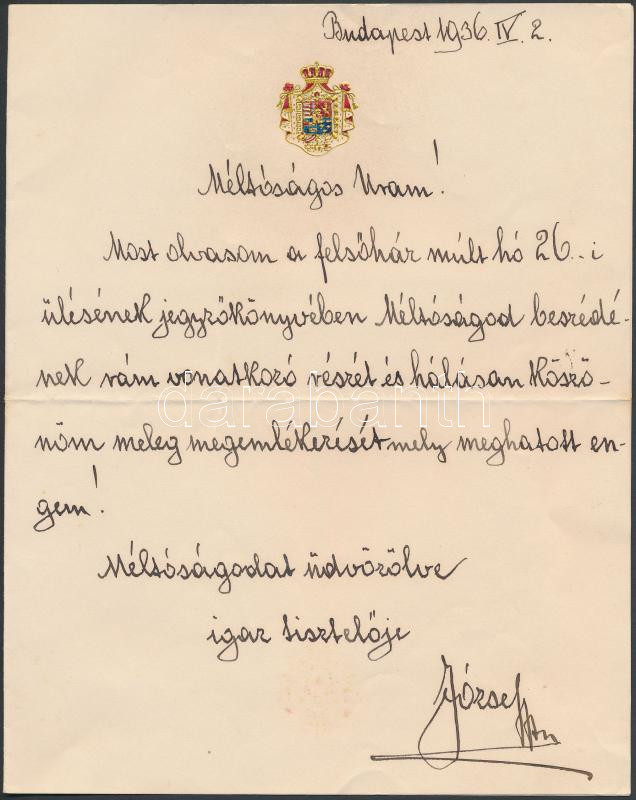 Budapest 1936. IV. 2.
Méltóságos Uram!
Most olvasom a felsőhár múlt hó 26.-i
ülésének jegyzőkönyvében Méltóságod beszédé-
nek rám vonatkozó részét és hálásan köszö-
nöm meleg megemlékezését mely meghatott en-
gem!
Méltóságodat üdvözölve
igaz tisztelője
József
darabanth